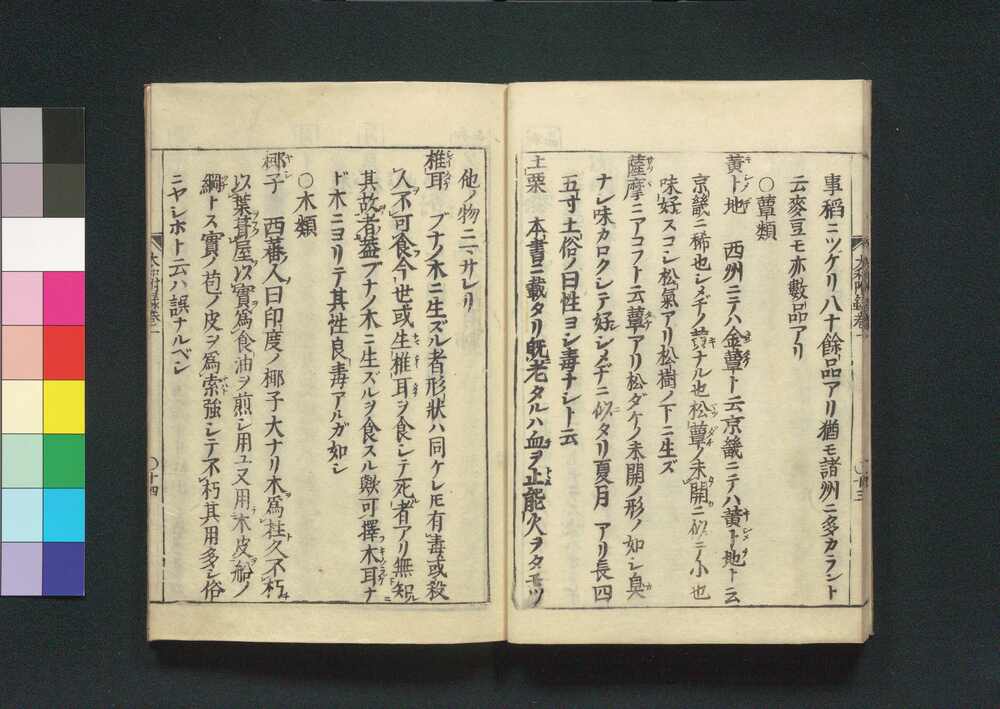 事稻ニツゲリ八十餘品アリ猶モ諸州ニ多カラント
云麥豆モ亦數品アリ
○蕈類
黃ト地 西州ニテハ金蕈ト云京畿ニテハ黃ト地ト云
京畿ニ稀也シメヂノ黃ナル也松蕈ノ未開ニ似テ小也
味好スコシ松氣アリ松樹ノ下ニ生ズ
薩摩ニアコフト云蕈アリ松ダケノ未開ノ形ノ如シ臭
ナシ味カロクシテ好シメヂニ似タリ夏月アリ長四
五寸土俗ノ曰性ヨシ毒ナシト云
土栗 本書ニ載タリ既老タルハ血ヲ止能火ヲタモツ
大和本草附錄卷一
○十三
他ノ物ニマサレリ
椎耳 ブナノ木ニ生ズル者形狀ハ同ケレ𪜈有毒或殺
人不可食今世或生椎耳ヲ食シテ死者アリ無知
其故者蓋ブナノ木ニ生ズルヲ食スル歟可擇木耳ナ
ド木ニヨリテ其性良毒アルガ如シ
○木類
椰子 西蕃人曰印度ノ椰子大ナリ木爲柱久不朽
以葉葺屋以實爲食油ヲ煎シ用ユ又用木皮船ノ
綱トス實ノ苞ノ皮ヲ爲索強シテ不朽其用多シ俗
ニヤシホト云ハ誤ナルベシ
○十四